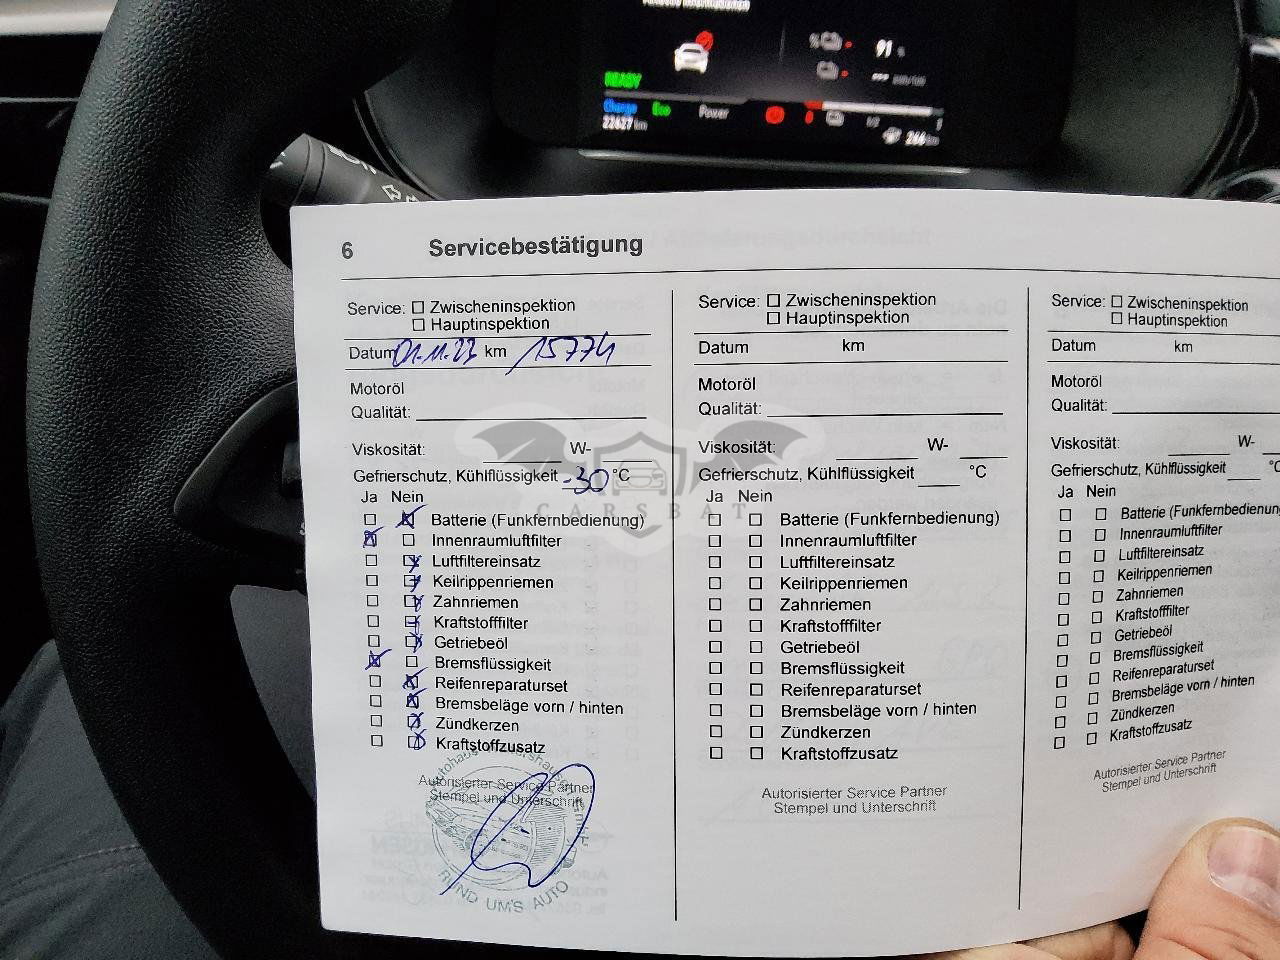 READY
91 %
Charge Eco Power
22627 km
266 km
6 Servicebestätigung
Service: ☐ Zwischeninspektion
☐ Hauptinspektion
Datum 01.11.23 km 15774
Motoröl
Qualität:
Viskosität: W-
Gefrierschutz, Kühlflüssigkeit -30 °C
Ja Nein
Batterie (Funkfernbedienung)
Innenraumluftfilter
Luftfiltereinsatz
Keilrippenriemen
Zahnriemen
Kraftstofffilter
Getriebeöl
Bremsflüssigkeit
Reifenreparaturset
Bremsbeläge vorn / hinten
Zündkerzen
Kraftstoffzusatz
Autorisierter Service Partner
Stempel und Unterschrift
RUND UM'S AUTO
Service: ☐ Zwischeninspektion
☐ Hauptinspektion
Datum km
Motoröl
Qualität:
Viskosität: W-
Gefrierschutz, Kühlflüssigkeit °C
Ja Nein
Batterie (Funkfernbedienung)
Innenraumluftfilter
Luftfiltereinsatz
Keilrippenriemen
Zahnriemen
Kraftstofffilter
Getriebeöl
Bremsflüssigkeit
Reifenreparaturset
Bremsbeläge vorn / hinten
Zündkerzen
Kraftstoffzusatz
Autorisierter Service Partner
Stempel und Unterschrift
Service: ☐ Zwischeninspektion
☐ Hauptinspektion
Datum km
Motoröl
Qualität:
Viskosität: W-
Gefrierschutz, Kühlflüssigkeit °C
Ja Nein
Batterie (Funkfernbedienung
Innenraumluftfilter
Luftfiltereinsatz
Keilrippenriemen
Zahnriemen
Kraftstofffilter
Getriebeöl
Bremsflüssigkeit
Reifenreparaturset
Bremsbeläge vorn / hinten
Zündkerzen
Kraftstoffzusatz
Autorisierter Service Partner
Stempel und Unterschrift
CARSBAT